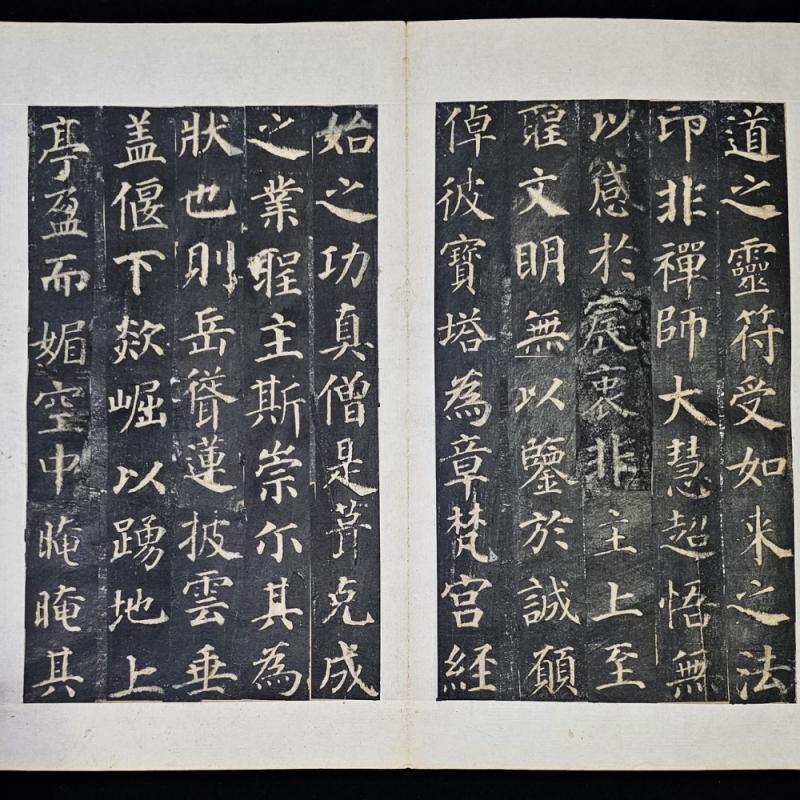 道之靈符受如来之法
印非禪師大慧超悟無
以感於宸衷非主上至
聖文明無以鑒於誠願
倬彼寶塔為章梵宫経
始之功真僧是葺克成
之業聖主斯崇尒其為
狀也則岳聳蓮披雲垂
盖偃下欻崛以踴地上
亭盈而媚空中晻晻其